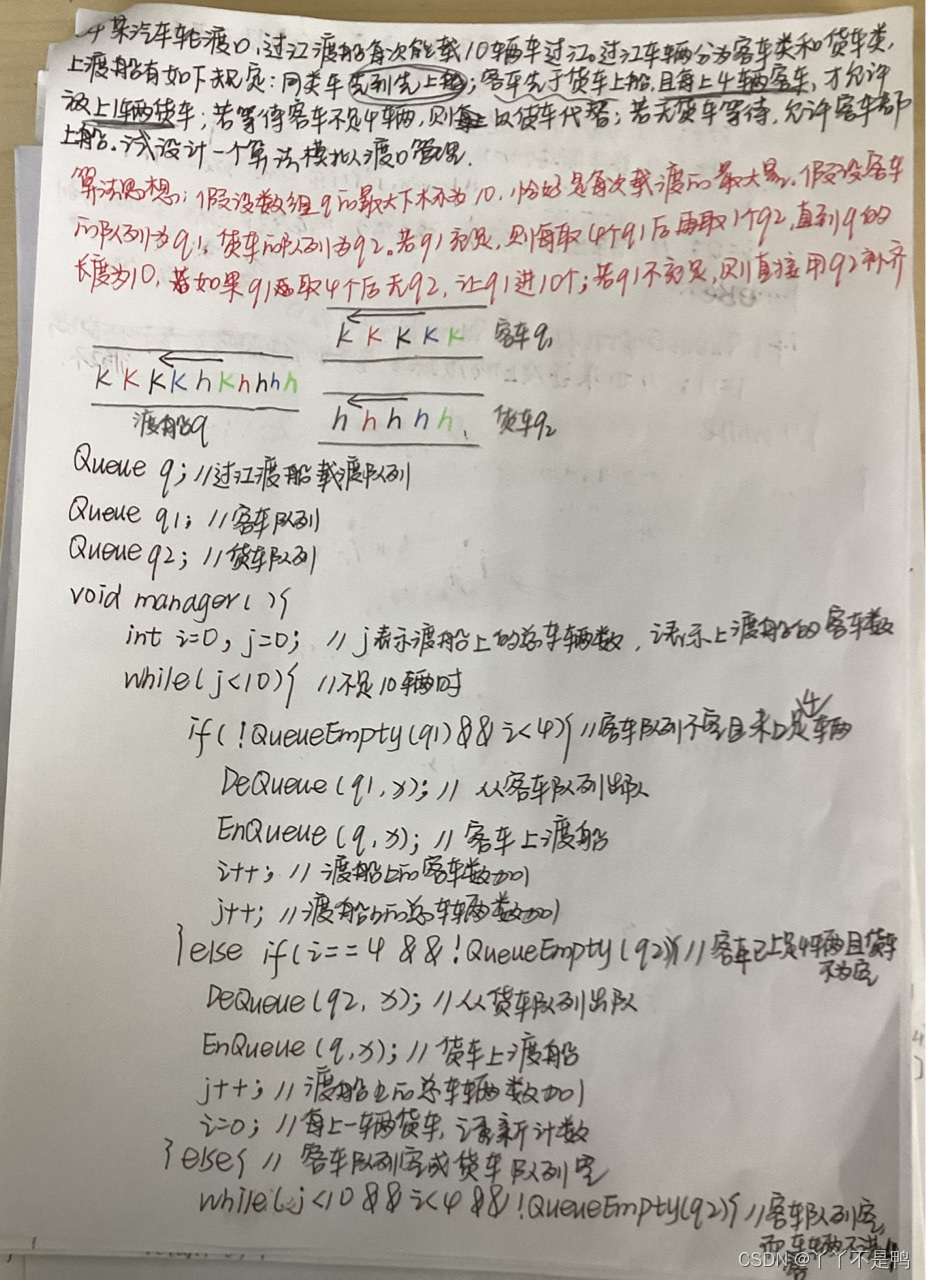 4 某汽车轮渡口,过江渡船每次能载10辆车过江。过江车辆分为客车类和货车类,
上渡船有如下规定:同类车先到先上船;客车先于货车上船,且每上4辆客车,才允许
放上1辆货车;若等待客车不足4辆,则以货车代替;若无货车等待,允许客车都
上船。试设计一个算法模拟渡口管理.
算法思想:假设数组q的最大下标为10,恰好是每次载渡的最大量。假设客车
的队列为q1,货车的队列为q2。若q1充足,则每取4个q1后再取1个q2,直到q的
长度为10,若如果q1取4个后无q2,让q1进10个;若q1不充足,则直接用q2补齐
K K K K K 客车q1
K K K K h K h h h h
渡船q
h h h h h 货车q2
Queue q; //过江渡船载渡队列
Queue q1; //客车队列
Queue q2; //货车队列
void manager(){
int i=0, j=0; // j表示渡船上的总车辆数,i表示上渡船的客车数
while(j<10){ //不足10辆时
if(!QueueEmpty(q1)&&i<4){ //客车队列不空且未上足4辆
DeQueue(q1,x); // 从客车队列出队
EnQueue(q,x); // 客车上渡船
i++; // 渡船上的客车数加1
j++; //渡船上的总车辆数加1
}else if(i==4 && !QueueEmpty(q2)){ //客车已上足4辆且货车
不为空
DeQueue(q2,x); //从货车队列出队
EnQueue(q,x); //货车上渡船
j++; //渡船上的总车辆数加1
i=0; //每上一辆货车,i重新计数
}else{ // 客车队列空或货车队列空
while(j<10 && i<4 && !QueueEmpty(q2){ //客车队列空
CSDN @丫丫不是鸭